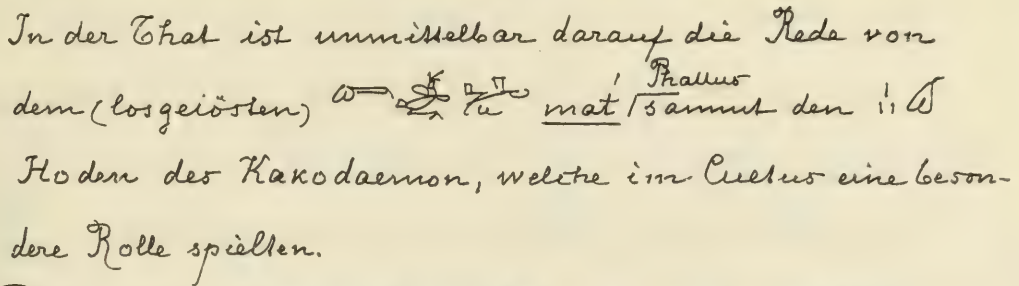 In der That ist unmittelbar darauf die Rede von
dem (losgelösten) mat' Phallus sammt den
Hoden des Kakodaemon, welche im Cultus eine beson-
dere Rolle spielten.